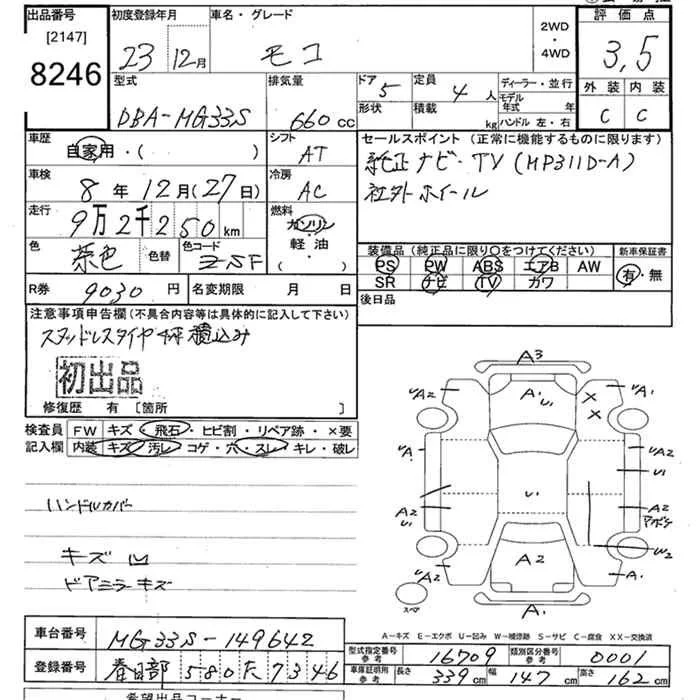 出品番号 初度登録年月 車名・グレード 2WD・4WD 評価点
[2147]
8246 23 12月 モコ 3,5
型式 排気量 ドア 5 定員 4人 ディーラー・並行 外装 内装
DBA-MG33S 660cc 形状 積載 kg モデル年式 年 ハンドル 左・右 C C
車歴 自家用・( ) シフト AT セールスポイント(正常に機能するものに限ります)
純正ナビ・TV(MP311D-A)
車検 8年12月(27日) 冷房 AC 社外ホイール
走行 9万2千250km 燃料 ガソリン・軽油・( )
色 茶色 色替 色コード ZSF
装備品(純正品に限り○をつけてください) 新車保証書
PS PW ABS エアB AW 有・無
SR ナビ TV カワ
R券 9030円 名変期限 月 日 後日品
注意事項申告欄(不具合内容等は具体的に記入して下さい)
スタッドレスタイヤ4本積込み
初出品
修復歴 有 [箇所 ]
検査員記入欄 FW キズ・飛石・ヒビ割・リペア跡・×要
内装 キズ・汚レ・コゲ・穴・スレ・キレ・破レ
ハンドルカバー
キズ 凹
ドアミラーキズ
A3
UA2 A・U, UA1
X X
UA UA2
U1
U1
A2 U1 A2
W2
UA2 A2 A1
スペア A1
A-キズ E-エクボ U-凹み W-補修跡 S-サビ C-腐食 XX-交換済
車台番号 MG33S-149642
登録番号 春日部 580 た 7346
型式指定番号 参考 16709 類別区分番号 参考 0001
車庫証明用 参考 長さ 339cm 幅 147cm 高さ 162cm
希望出品コーナー